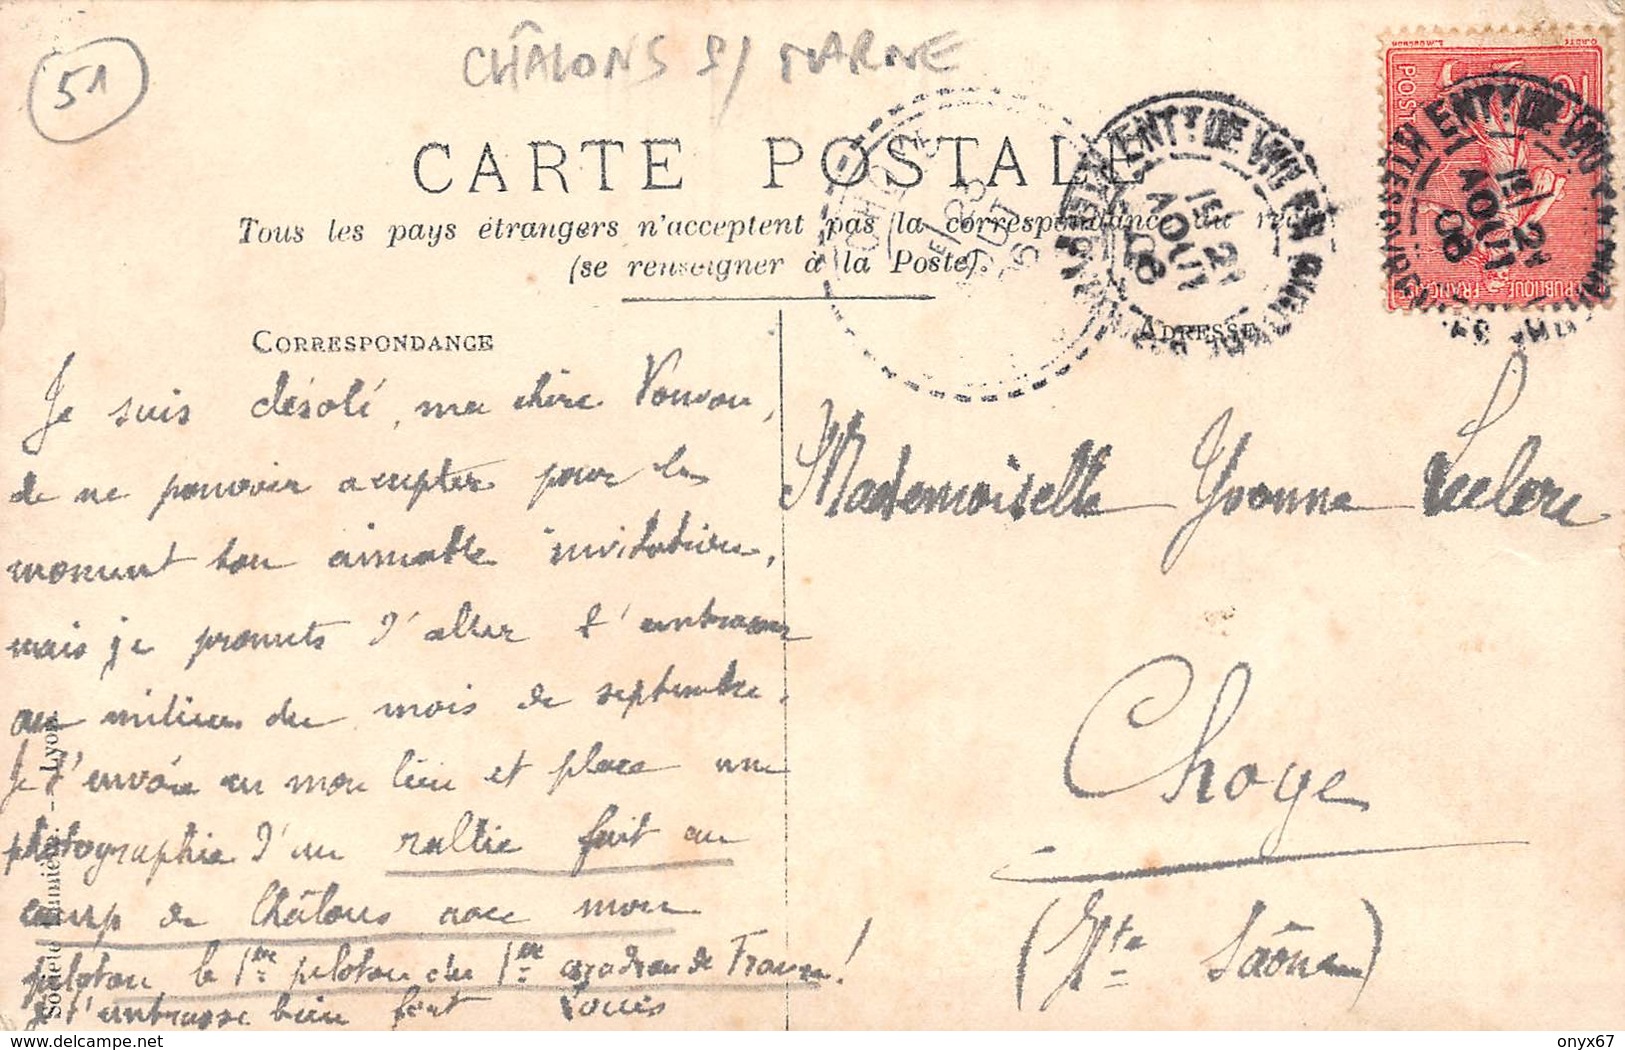 51
CHÂLONS S/ MARNE
CARTE POSTALE
Tous les pays étrangers n'acceptent pas la correspondance au
(se renseigner à la Poste).
CORRESPONDANCE
ADRESSE
POSTES
RÉPUBLIQUE FRANÇAISE
15 / 21
AOUT
06
Je suis désolé, ma chère Vonvon,
de ne pouvoir accepter pour le
moment ton aimable invitation,
mais je promets d'aller t'embrasser
au milieu du mois de septembre.
Je t'envoie en mon lieu et place une
photographie d'un rallie fait au
camp de Châlons avec mon
peloton, le 1er peloton du 1er escadron de France!
Je t'embrasse bien fort Louis
Mademoiselle Yvonne Leclerc
Choye
(Hte Saône)
Société Lumière. - Lyon
delcampe.net
onyx67